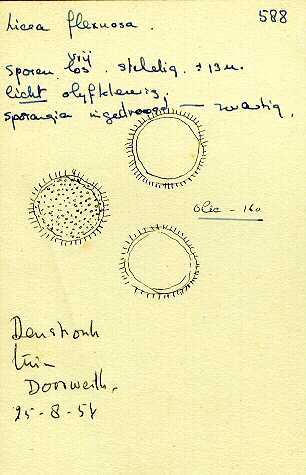 Licea flexuosa. 588
vrij
Sporen los. stekelig. ± 13 u.
licht olyfkleurig.
sporangia ingedroogd — zwartig.
Olie - 160
Doorwerth.
25-8-54